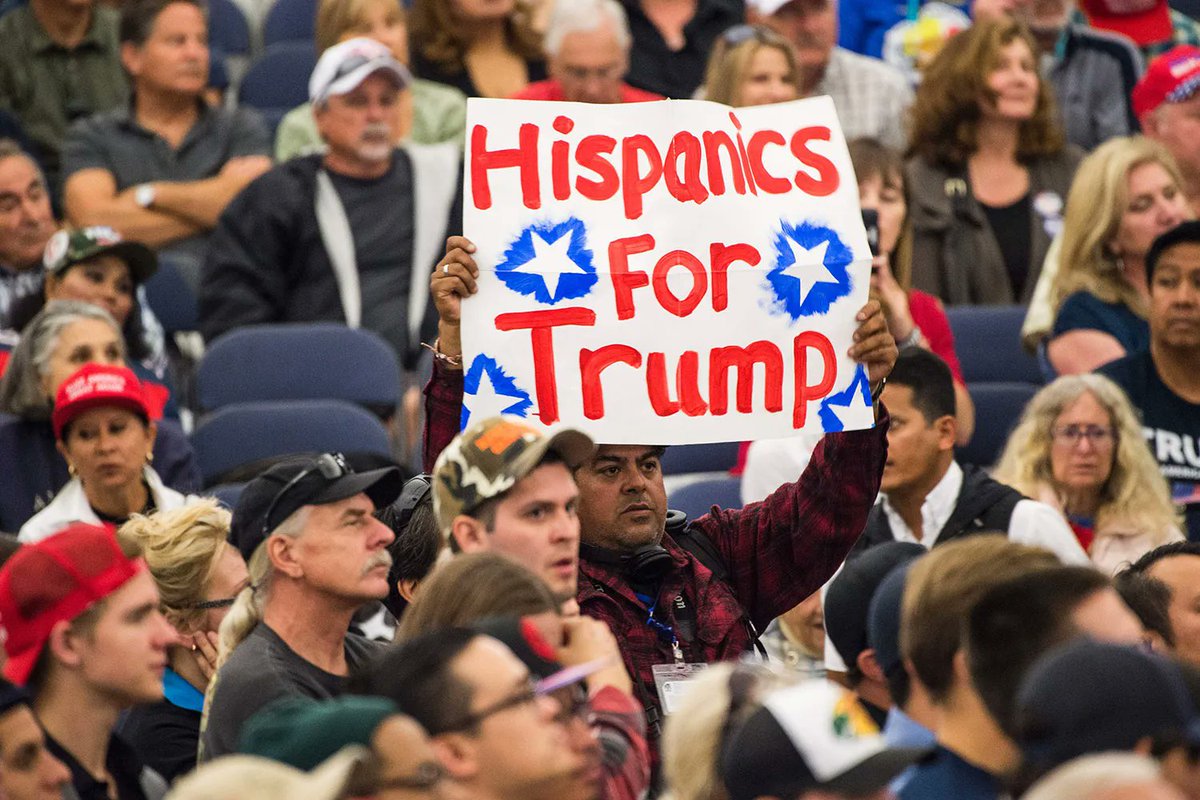 Hispanics
For
Trump
TRU